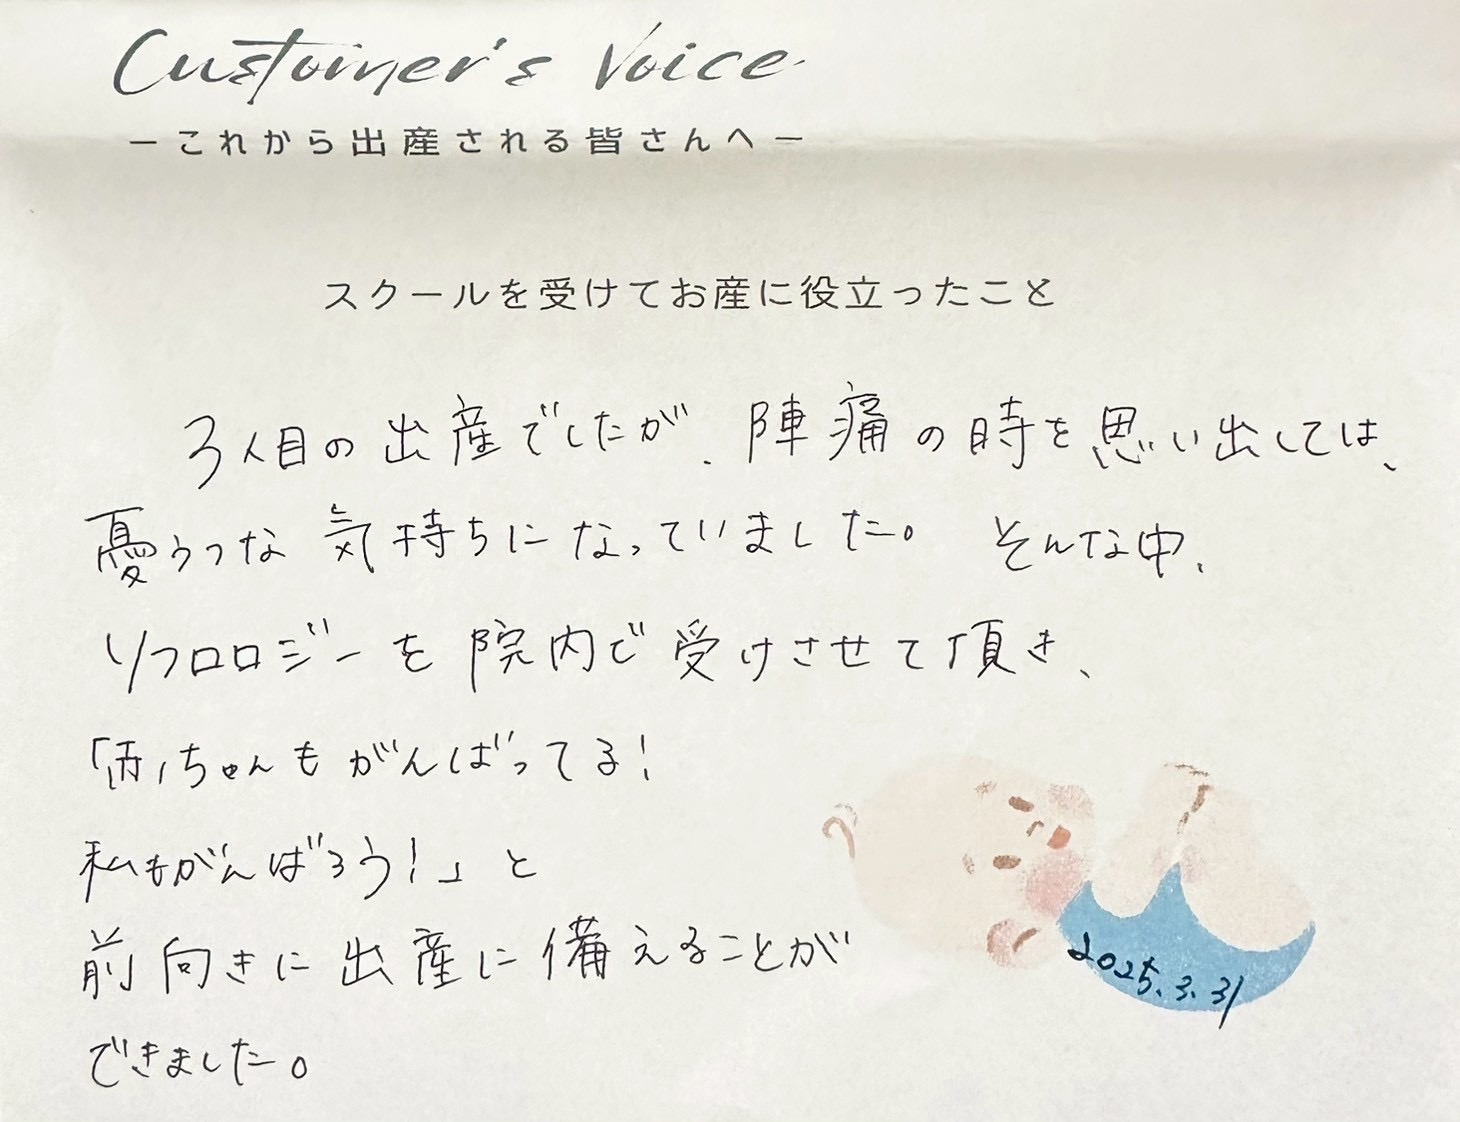 Customer's Voice
ーこれから出産される皆さんへー
スクールを受けてお産に役立ったこと
3人目の出産でしたが、陣痛の時を思い出しては、
憂うつな気持ちになっていました。そんな中、
ソフロロジーを院内で受けさせて頂き、
「赤ちゃんもがんばってる!
私もがんばろう!」と
前向きに出産に備えることが
できました。
2025.3.31